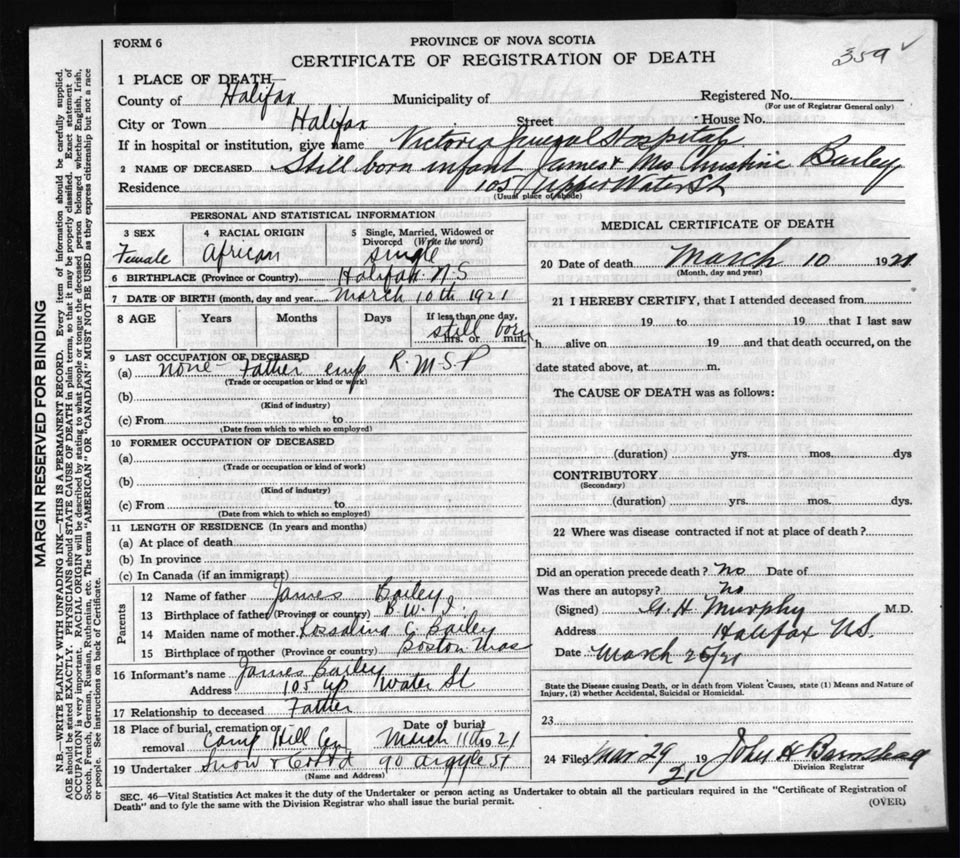 FORM 6
PROVINCE OF NOVA SCOTIA
CERTIFICATE OF REGISTRATION OF DEATH
359
1 PLACE OF DEATH
County of Halifax Municipality of Registered No.
(For use of Registrar General only)
City or Town Halifax Street House No.
If in hospital or institution, give name Victoria General Hospital
2 NAME OF DECEASED Still born infant James & Mrs Christine Bailey
Residence 105 Upper Water St
(Usual place of abode)
PERSONAL AND STATISTICAL INFORMATION
3 SEX Female
4 RACIAL ORIGIN African
5 Single, Married, Widowed or Divorced (Write the word) single
6 BIRTHPLACE (Province or Country) Halifax N.S
7 DATE OF BIRTH (month, day and year) March 10th 1921
8 AGE Years Months Days If less than one day, hrs. or min. still born
9 LAST OCCUPATION OF DECEASED
(a) none - Father emp R.M.S.P
(Trade or occupation or kind or work)
(b)
(Kind of industry)
(c) From to
(Date from which to which so employed)
10 FORMER OCCUPATION OF DECEASED
(a)
(Trade or occupation or kind of work)
(b)
(Kind of industry)
(c) From to
(Date from which to which so employed)
11 LENGTH OF RESIDENCE (In years and months)
(a) At place of death
(b) In province
(c) In Canada (if an immigrant)
Parents
12 Name of father James Bailey
13 Birthplace of father (Province or country) B.W.I.
14 Maiden name of mother C Bailey
15 Birthplace of mother (Province or country) Boston Mas
16 Informant's name James Bailey
Address 105 up Water St
17 Relationship to deceased Father
18 Place of burial, cremation or removal Camp Hill Date of burial March 11th 1921
19 Undertaker Snow & 90 Argyle St
(Name and Address)
MEDICAL CERTIFICATE OF DEATH
20 Date of death March 10 1921
(Month, day and year)
21 I HEREBY CERTIFY, that I attended deceased from
19 to 19 that I last saw
h alive on 19 and that death occurred, on the
date stated above, at m.
The CAUSE OF DEATH was as follows:
(duration) yrs. mos. dys
CONTRIBUTORY
(Secondary)
(duration) yrs. mos. dys.
22 Where was disease contracted if not at place of death?
Did an operation precede death? No Date of
Was there an autopsy? No
(Signed) G. H. Murphy M.D.
Address Halifax N.S.
Date March 26/21
State the Disease causing Death, or in death from Violent Causes, state (1) Means and Nature of
Injury, (2) whether Accidental, Suicidal or Homicidal.
23
24 Filed Mar 29 1921 John H Barnstead
Division Registrar
SEC. 46—Vital Statistics Act makes it the duty of the Undertaker or person acting as Undertaker to obtain all the particulars required in the "Certificate of Registration of
Death" and to fyle the same with the Division Registrar who shall issue the burial permit.
(OVER)
MARGIN RESERVED FOR BINDING
N.B.—WRITE PLAINLY WITH UNFADING INK—THIS IS A PERMANENT RECORD. Every item of information should be carefully supplied.
AGE should be stated EXACTLY. PHYSICIANS should STATE CAUSE OF DEATH in plain terms, so that it may be properly classified. Exact statement of
OCCUPATION is very important. RACIAL ORIGIN will be described by stating to what people or tongue the deceased person belonged, whether English, Irish,
Scotch, French, German, Russian, Ruthenian, etc. The terms "AMERICAN" OR "CANADIAN" MUST NOT BE USED as they express citizenship but not a race
or people. See instructions on back of Certificate.